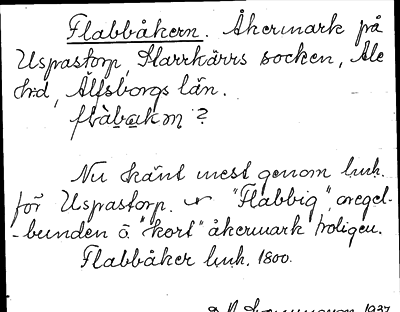 Flabbåkern. Åkermark på
Uspastorp, Starrkärrs socken, Ale
hd, Älfsborgs län.
flàbakɳ ?
Nu känt mest genom luk.
för Uspastorp. "Flabbig", oregel-
-bunden o. "kort" åkermark troligen.
Flabbåker luk. 1800.
1937